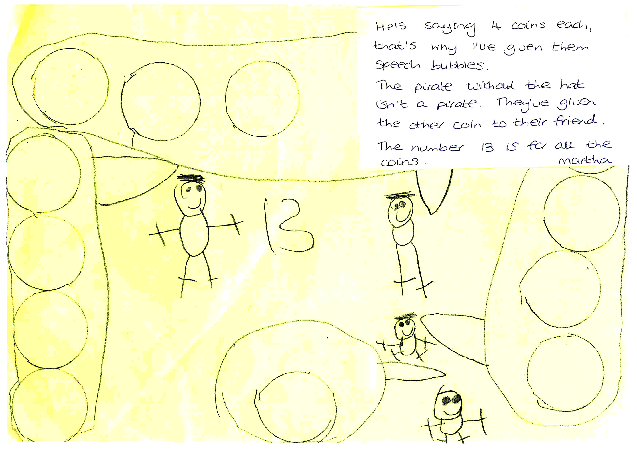 He's saying 4 coins each,
that's why I've given them
speech bubbles.
The pirate without the hat
isn't a pirate. They've given
the other coin to their friend.
The number 13 is for all the
coins. martha
13